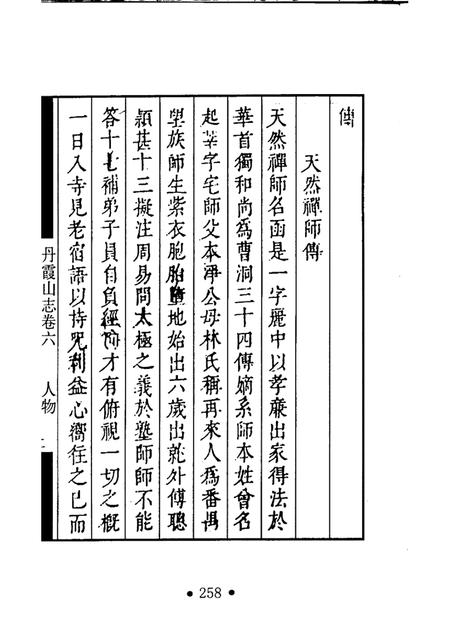 傳
天然禪師傳
天然禪師名函是一字麗中以孝廉出家得法於
華首獨和尚爲曹洞三十四傳嫡系師本姓曾名
起莘字宅師父本淨公母林氏稱再來人爲番禺
望族師生紫衣胞胎墮地始出六歲出就外傅聰
頴甚十三擬注周易問太極之義於塾師師不能
答十七補弟子員自負經濟才有俯視一切之概
一日入寺見老宿語以持呪利益心嚮往之已而
丹霞山志卷六 人物
• 258 •